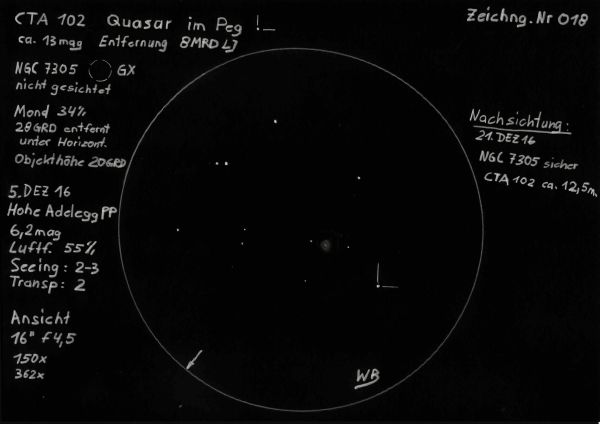 CTA 102 Quasar im Peg
ca. 13mag Entfernung 8MRD LJ
NGC 7305 GX
nicht gesichtet
Mond 34%
28GRD entfernt
unter Horizont.
Objekthöhe 20GRD
5.DEZ 16
Hohe Adelegg PP
6,2mag
Luftf. 55%
Seeing: 2-3
Transp: 2
Ansicht
16" f4,5
150x
362x
WB
Zeichng. Nr 018
Nachsichtung:
21.DEZ 16
NGC 7305 sicher
CTA 102 ca. 12,5m.